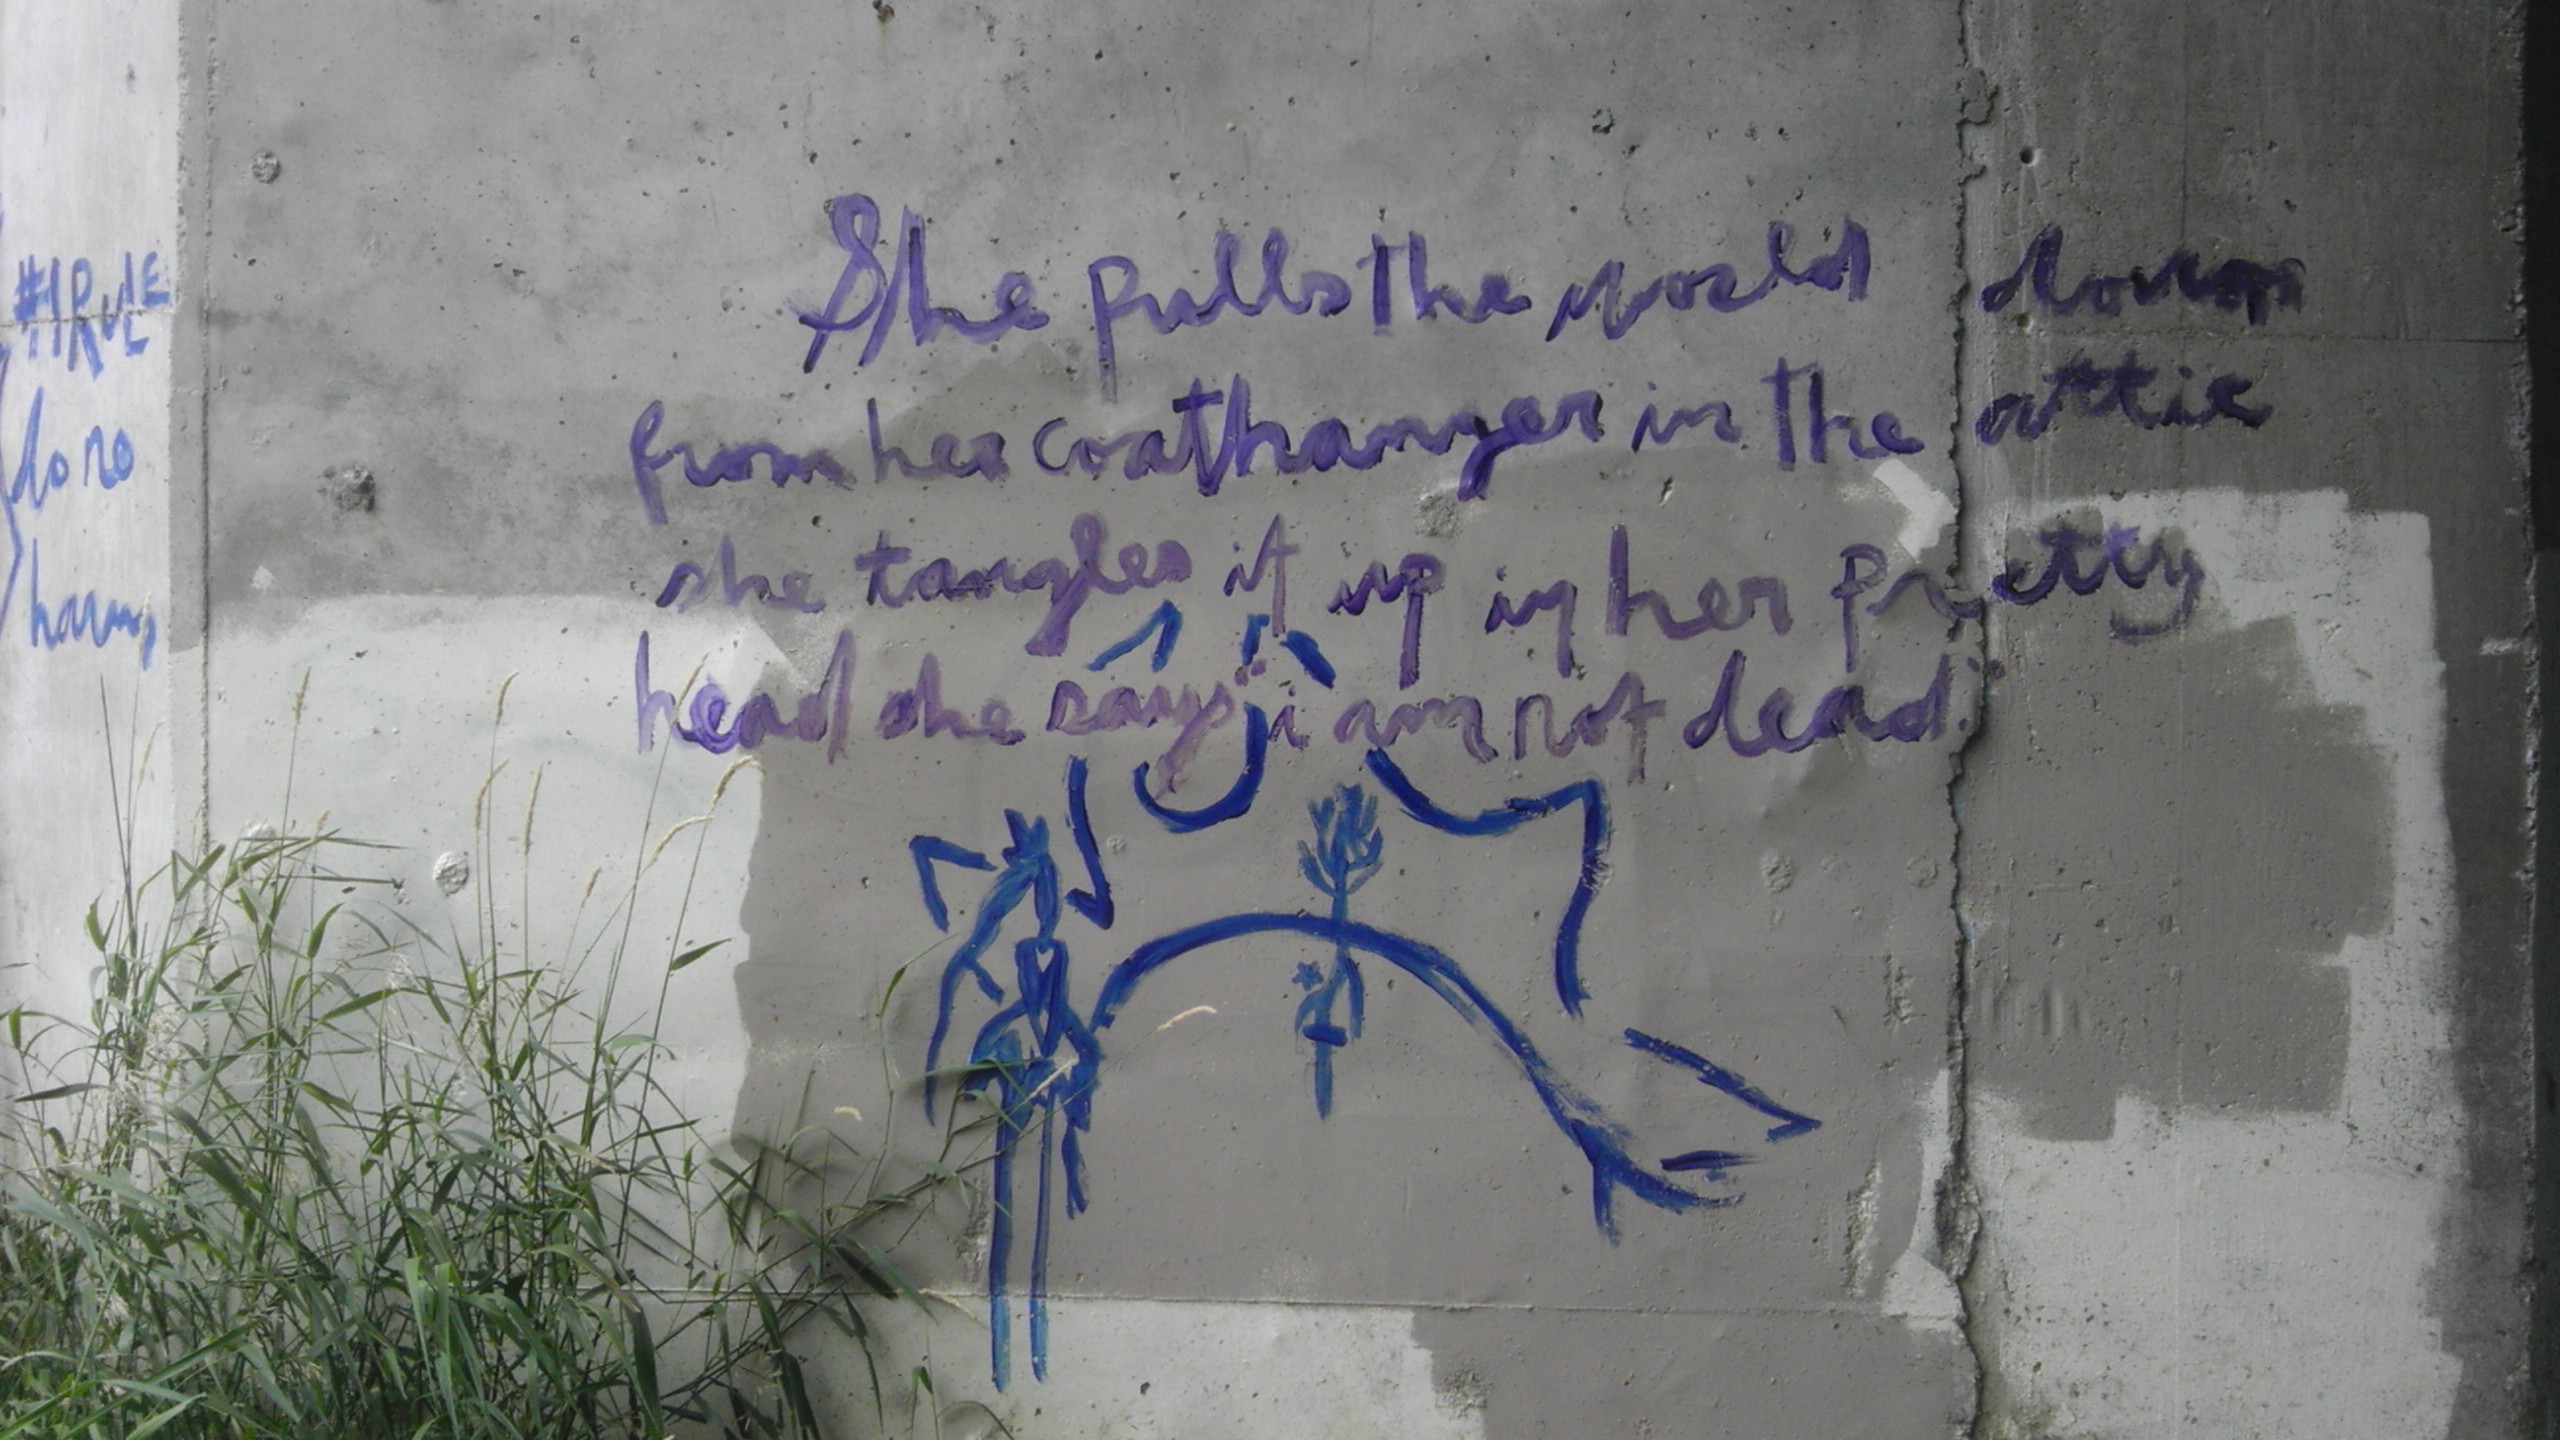 #1RulE
do no
harm
She pulls the world down
from her coathanger in the attic
she tangles it up in her pretty
head she says "i am not dead."